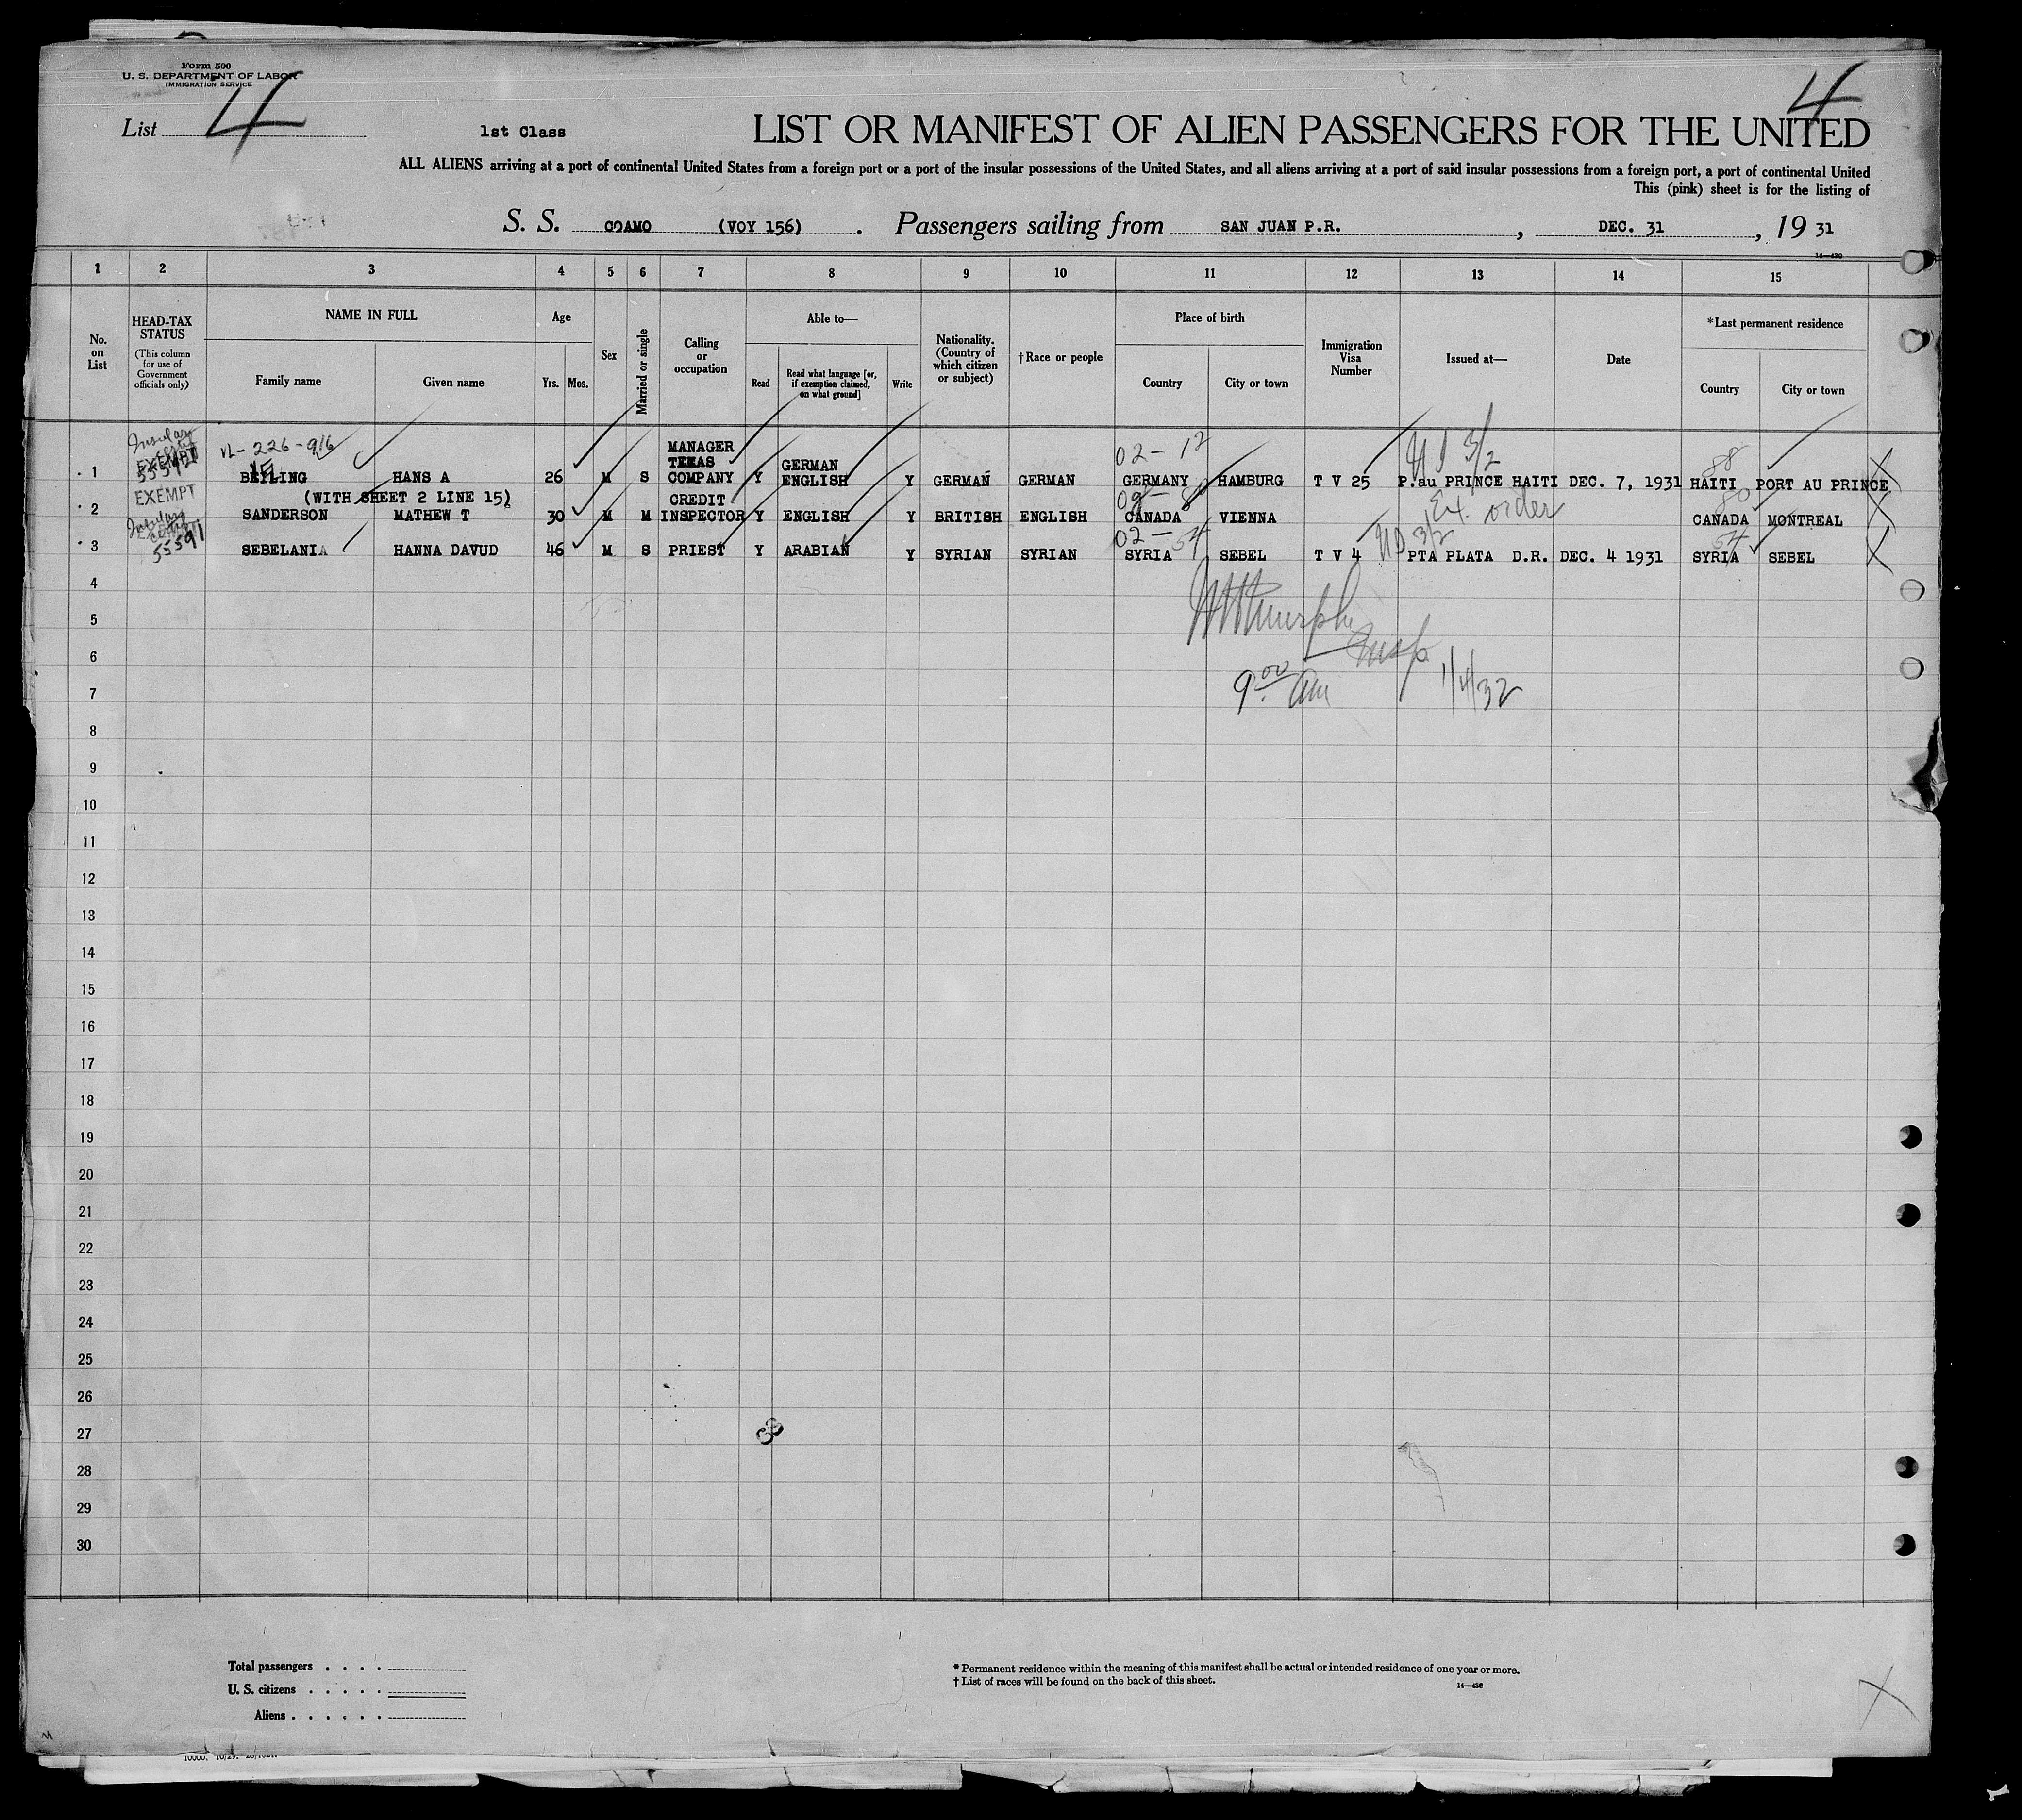 Form 500
U. S. DEPARTMENT OF LABOR
IMMIGRATION SERVICE
List 4
1st Class
4
LIST OR MANIFEST OF ALIEN PASSENGERS FOR THE UNITED
ALL ALIENS arriving at a port of continental United States from a foreign port or a port of the insular possessions of the United States, and all aliens arriving at a port of said insular possessions from a foreign port, a port of continental United
This (pink) sheet is for the listing of
S. S. COAMO (VOY 156) . Passengers sailing from SAN JUAN P.R. , DEC. 31 , 19 31
14—430
1 2 3 4 5 6 7 8 9 10 11 12 13 14 15
No. on List
HEAD-TAX STATUS
(This column for use of Government officials only)
NAME IN FULL
Family name
Given name
Age
Yrs.
Mos.
Sex
Married or single
Calling or occupation
Able to—
Read
Read what language [or, if exemption claimed, on what ground]
Write
Nationality. (Country of which citizen or subject)
†Race or people
Place of birth
Country
City or town
Immigration Visa Number
Issued at—
Date
*Last permanent residence
Country
City or town
Insular
VL-226-916
MANAGER
02-12
UD 3/2
88
EXEMPT
TEXAS
GERMAN
1 BEYLING HANS A 26 M S COMPANY Y ENGLISH Y GERMAN GERMAN GERMANY HAMBURG T V 25 P.au PRINCE HAITI DEC. 7, 1931 HAITI PORT AU PRINCE
EXEMPT
(WITH SHEET 2 LINE 15)
CREDIT
Ex. order
80
2 SANDERSON MATHEW T 30 M M INSPECTOR Y ENGLISH Y BRITISH ENGLISH CANADA VIENNA CANADA MONTREAL
Insular
02-54
UD 3/2
54
55591
3 SEBELANIA HANNA DAVUD 46 M S PRIEST Y ARABIAN Y SYRIAN SYRIAN SYRIA SEBEL T V 4 PTA PLATA D.R. DEC. 4 1931 SYRIA SEBEL
4
5
Insp
6
9:00 am 1/4/32
7
8
9
10
11
12
13
14
15
16
17
18
19
20
21
22
23
24
25
26
27
28
29
30
Total passengers . . . .
U. S. citizens . . . . .
Aliens . . . . . .
* Permanent residence within the meaning of this manifest shall be actual or intended residence of one year or more.
† List of races will be found on the back of this sheet.
14—430